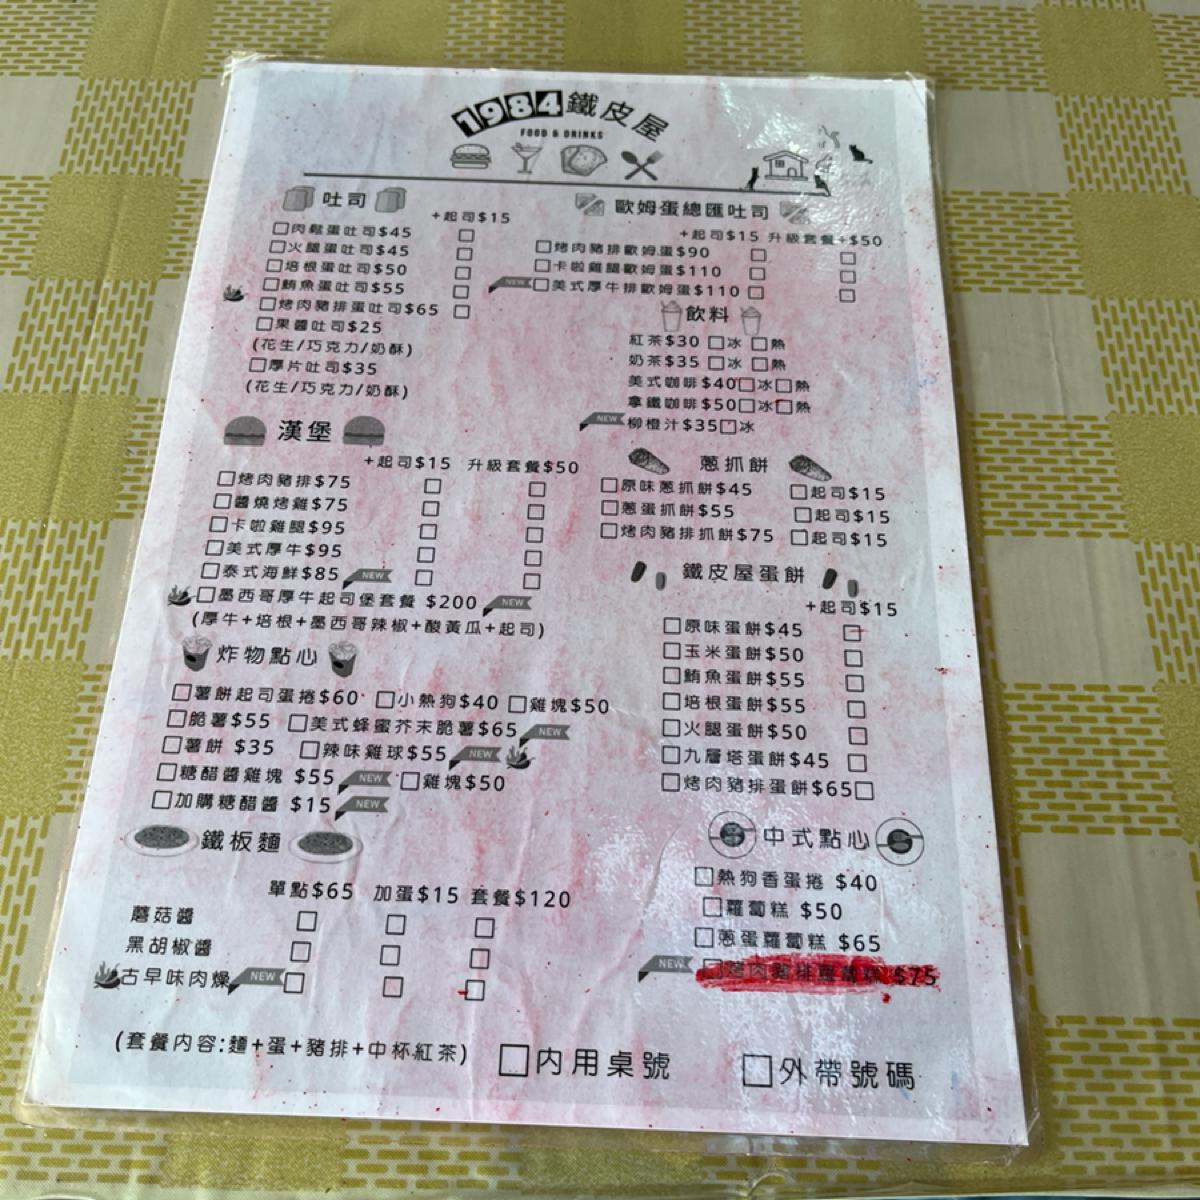 1984鐵皮屋
FOOD & DRINKS
吐司
+起司$15
□肉鬆蛋吐司$45 □
□火腿蛋吐司$45 □
□培根蛋吐司$50 □
□鮪魚蛋吐司$55 □
□烤肉豬排蛋吐司$65 □
□果醬吐司$25
(花生/巧克力/奶酥)
□厚片吐司$35
(花生/巧克力/奶酥)
歐姆蛋總匯吐司
+起司$15 升級套餐+$50
□烤肉豬排歐姆蛋$90 □ □
□卡啦雞腿歐姆蛋$110 □ □
NEW □美式厚牛排歐姆蛋$110 □ □
飲料
紅茶$30 □冰 □熱
奶茶$35 □冰 □熱
美式咖啡$40□冰□熱
拿鐵咖啡$50□冰□熱
NEW 柳橙汁$35□冰
漢堡
+起司$15 升級套餐$50
□烤肉豬排$75 □ □
□醬燒烤雞$75 □ □
□卡啦雞腿$95 □ □
□美式厚牛$95 □ □
□泰式海鮮$85 NEW □ □
□墨西哥厚牛起司堡套餐 $200 NEW
(厚牛+培根+墨西哥辣椒+酸黃瓜+起司)
蔥抓餅
□原味蔥抓餅$45 □起司$15
□蔥蛋抓餅$55 □起司$15
□烤肉豬排抓餅$75 □起司$15
鐵皮屋蛋餅
+起司$15
□原味蛋餅$45 □
□玉米蛋餅$50 □
□鮪魚蛋餅$55 □
□培根蛋餅$55 □
□火腿蛋餅$50 □
□九層塔蛋餅$45 □
□烤肉豬排蛋餅$65□
炸物點心
□薯餅起司蛋捲$60 □小熱狗$40 □雞塊$50
□脆薯$55 □美式蜂蜜芥末脆薯$65 NEW
□薯餅 $35 □辣味雞球$55 NEW
□糖醋醬雞塊 $55 NEW □雞塊$50
□加購糖醋醬 $15 NEW
鐵板麵
單點$65 加蛋$15 套餐$120
蘑菇醬 □ □ □
黑胡椒醬 □ □ □
古早味肉燥 NEW □ □ □
(套餐內容:麵+蛋+豬排+中杯紅茶)
中式點心
□熱狗香蛋捲 $40
□蘿蔔糕 $50
□蔥蛋蘿蔔糕 $65
NEW □烤肉豬排蘿蔔糕 $75
□內用桌號 □外帶號碼